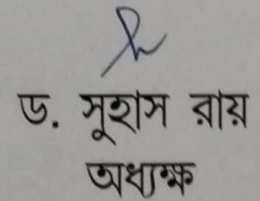 ড. সুহাস রায়
অধ্যক্ষ